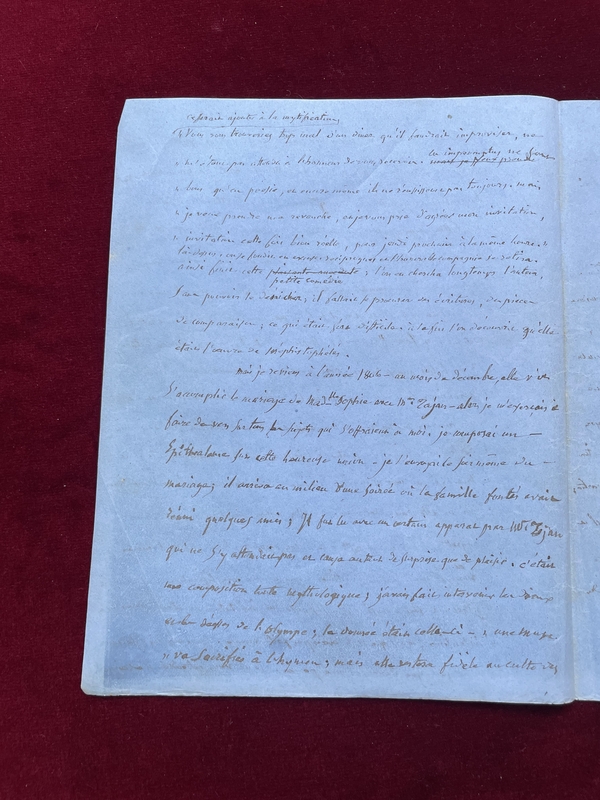 ce serait ajouter à la mystification,
« Vous vous trouveriez trop mal d'un diner qu'il faudrait improviser, ne
« m'étant pas attendu à l'honneur de vous recevoir. les impromptus ne sont
« bons qu'en poésie, et encore même ils ne réussissent pas toujours. mais
« je veux prendre ma revanche, et je vous prie d'agréer mon invitation,
« invitation cette fois bien réelle, pour jeudi prochain à la même heure. »
ainsi finit cette plaisante
petite comédie ; l'on en chercha longtemps l'auteur,
sans pouvoir le ; il fallait se procurer des écritures, des pièces
de comparaison ; ce qui était fort difficile. à la fin l'on découvrit qu'elle
était l'œuvre de Méphistophélès.
mais je reviens à l'année 1806 – au mois de décembre, elle vit
s'accomplir le mariage de Mad.lle Sophie avec Mr. Tajan – alors je m'exerçais à
faire des vers sur tous les sujets qui s'offraient à moi. je composai un –
Épithalame sur cette heureuse union – je l'envoyai le soir même du –
mariage ; il arriva au milieu d'une soirée où la famille avait
réuni quelques amis ; Il fut lu avec un certain apparat par Mr. Tajan
qui ne s'y attendait pas et causa autant de surprise que de plaisir. c'était
une composition toute mythologique ; j'avais fait intervenir les Dieux
et les déesses de l'olympe ; la donnée était celle-ci – ; une muse
va sacrifier à l'hymen ; mais elle restera fidèle au culte des